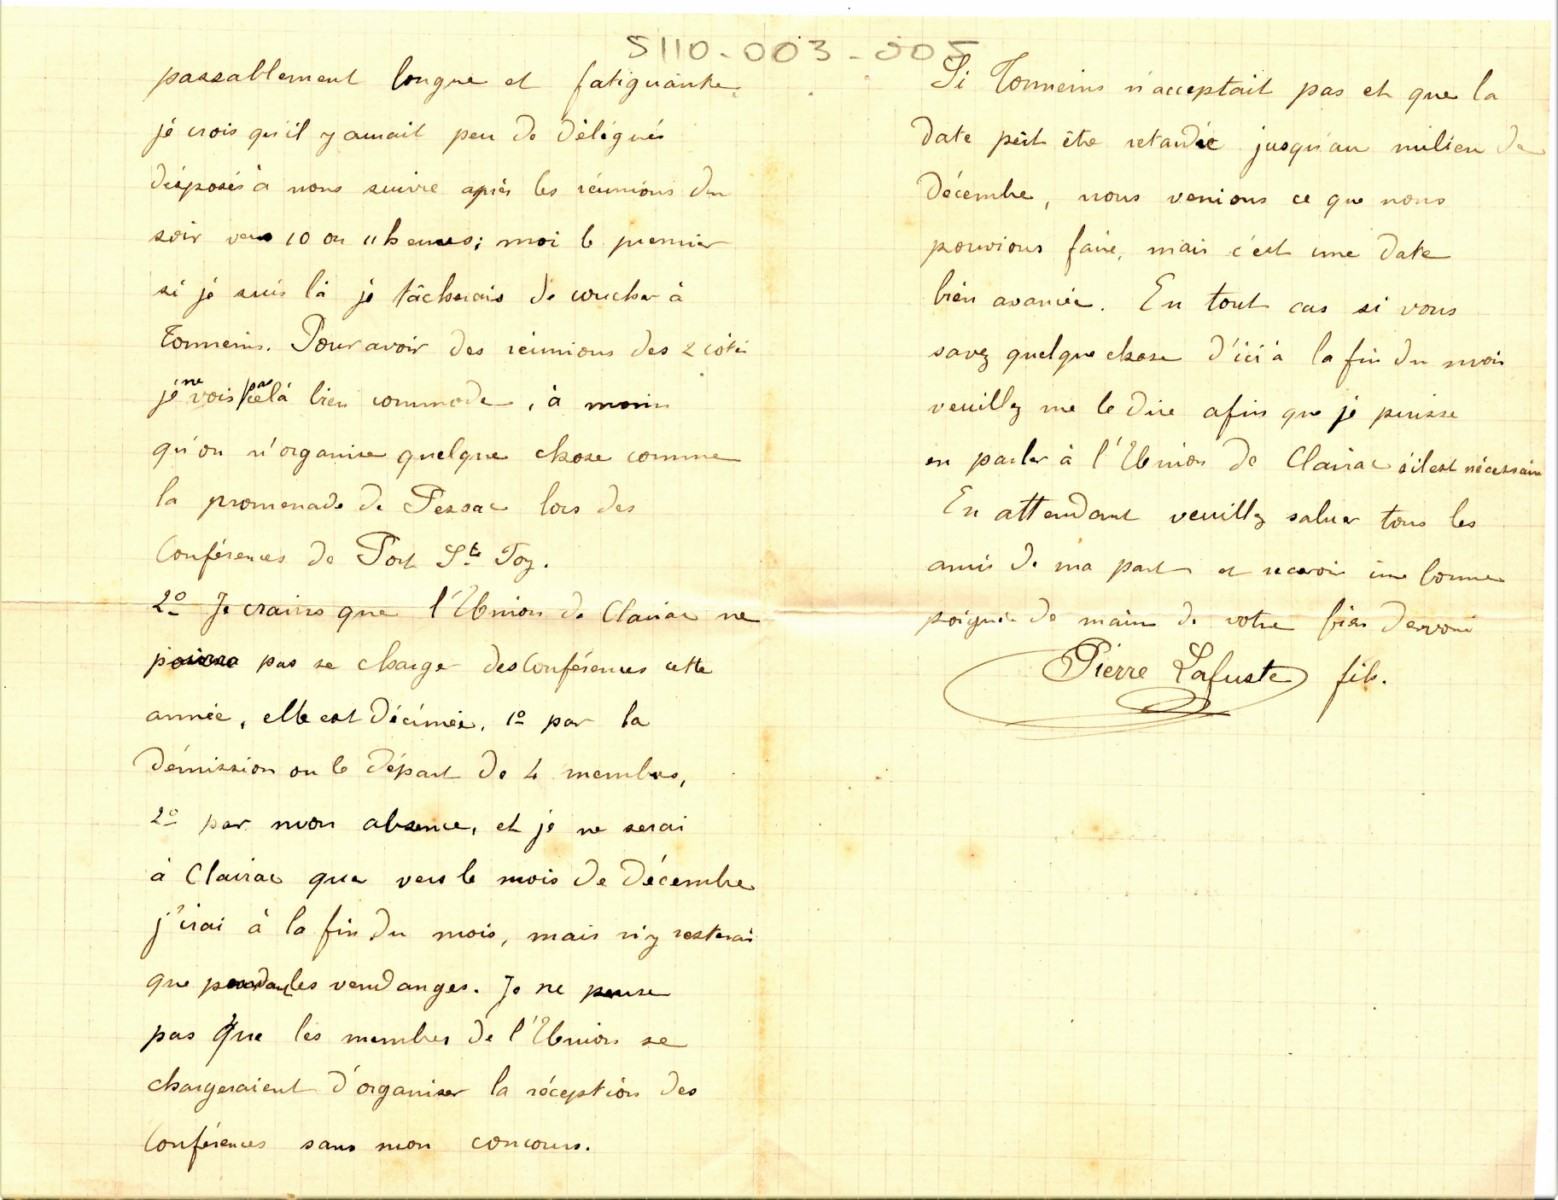 5110-003-005
passablement longue et fatiguante,
je crois qu'il y aurait peu de délégués
disposés à nous suivre après les réunions du
soir vers 10 ou 11 heures; moi le premier
si je suis là je tâcherais de coucher à
Tonneins. Pour avoir des réunions des 2 côtés
je ne vois pas celà bien commode, à moins
qu'on n'organise quelque chose comme
la promenade de Pessac lors des
Conférences de Port Ste Foy.
2º Je crains que l'Union de Clairac ne
puisse pas se charger des Conférences cette
année, elle est décimée, 1º par la
démission ou le départ de 4 membres,
2º par mon absence, et je ne serai
à Clairac que vers le mois de décembre
j'irai à la fin du mois, mais n'y resterai
que pendant les vendanges. Je ne pense
pas que les membres de l'Union se
chargeraient d'organiser la réception des
Conférences sans mon concours.
Si Tonneins n'acceptait pas et que la
date pût être retardée jusqu'au milieu de
décembre, nous verrions ce que nous
pourrions faire, mais c'est une date
bien avancée. En tout cas si vous
savez quelque chose d'ici à la fin du mois
veuillez me le dire afin que je puisse
en parler à l'Union de Clairac s'il est nécessaire
En attendant veuillez saluer tous les
amis de ma part et recevoir une bonne
poignée de main de votre bien dévoué
Pierre Lafuste fils.